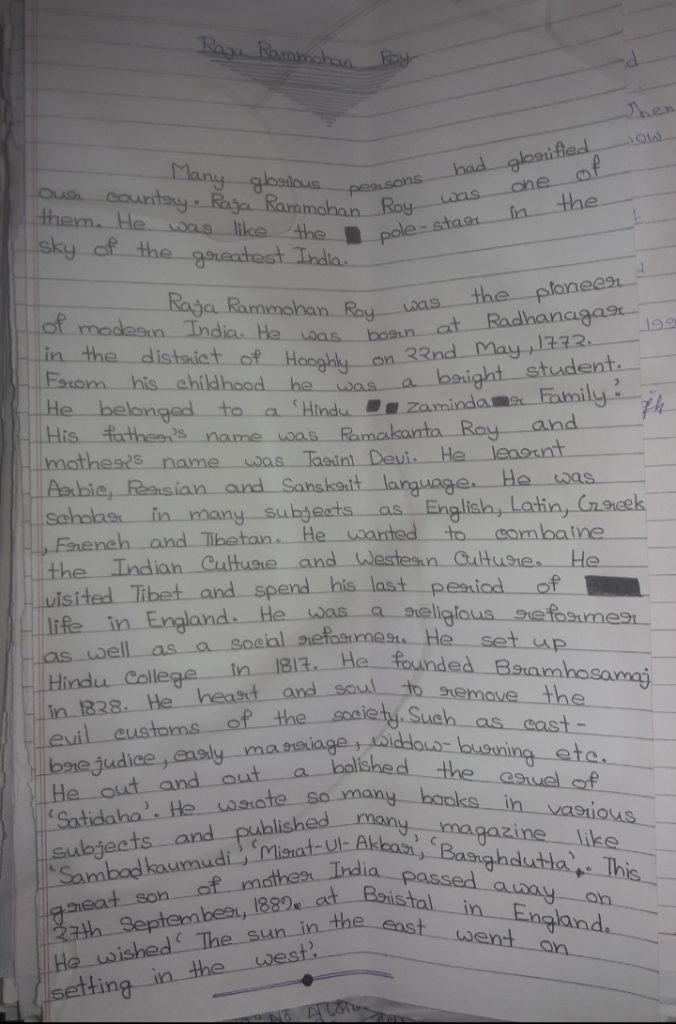 Raja Rammohan Roy
Many glorious persons had glorified
our country. Raja Rammohan Roy was one of
them. He was like the pole-star in the
sky of the greatest India.
Raja Rammohan Roy was the pioneer
of modern India. He was born at Radhanagar
in the district of Hooghly on 22nd May, 1772.
From his childhood he was a bright student.
He belonged to a 'Hindu zamindar Family'.
His father's name was Ramakanta Roy and
mother's name was Tarini Devi. He learnt
Arbic, Persian and Sanskrit language. He was
scholar in many subjects as English, Latin, Greek
, French and Tibetan. He wanted to combaine
the Indian Culture and Western Culture. He
visited Tibet and spend his last period of
life in England. He was a religious reformer
as well as a social reformer. He set up
Hindu College in 1817. He founded Bramhosamaj
in 1828. He heart and soul to remove the
evil customs of the society. Such as cast-
brejudice, early marriage, widdow-burning etc.
He out and out a bolished the cruel of
'Satidaha'. He wrote so many books in various
subjects and published many magazine like
'Sambadkaumudi', 'Mirat-Ul-Akbar', 'Barghdutta'. This
great son of mother India passed away on
27th September, 1882. at Bristal in England.
He wished 'The sun in the east went on
setting in the west'.
d
Then
ow
199
7h